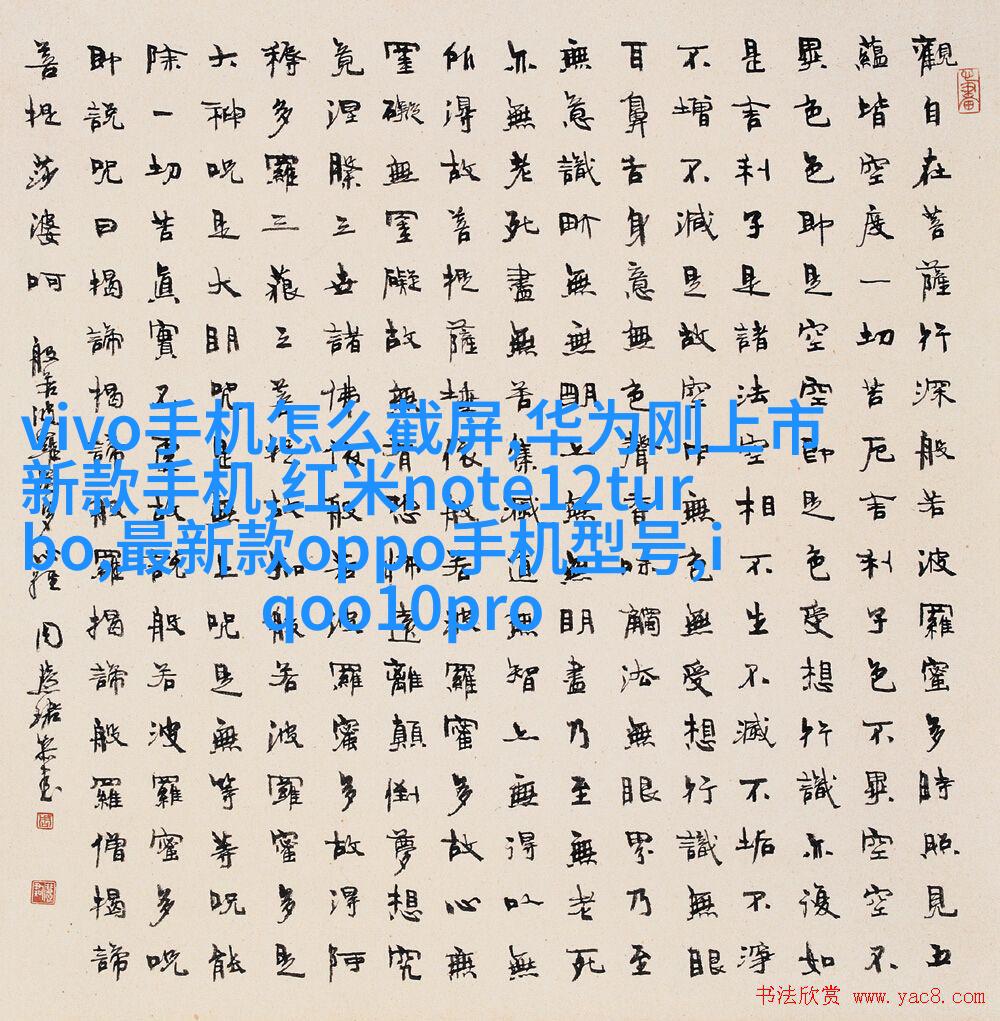 觀自在菩薩行深般若波羅蜜多時照見五
蘊皆空度一切苦厄舍利子色不異空空不
異色色即是空空即是色受想行識亦復如
是舍利子是諸法空相不生不滅不垢不淨
不增不減是故空中無色無受想行識無眼
耳鼻舌身意無色聲香味觸法無眼界乃至
無意識界無無明亦無無明盡乃至無老死
亦無老死盡無苦集滅道無智亦無得以無
所得故菩提薩埵依般若波羅蜜多故心無
罣礙無罣礙故無有恐怖遠離顛倒夢想究
竟涅槃三世諸佛依般若波羅蜜多故得阿
耨多羅三藐三菩提故知般若波羅蜜多是
大神呪是大明呪是無上呪是無等等呪能
除一切苦眞實不虛故說般若波羅蜜多呪
即說呪曰揭諦揭諦般羅揭諦般羅僧揭諦
菩提莎婆呵
般若波羅蜜多心經 周慧珺恭書
vivo手机怎么截屏,华为刚上市
新款手机,红米note12tur
bo,最新款oppo手机型号,i
qoo10pro
书法欣赏 www.yac8.com